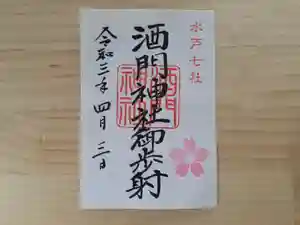 水戸七社
酒門神社御歩射
令和三年四月三日
酒門
神社